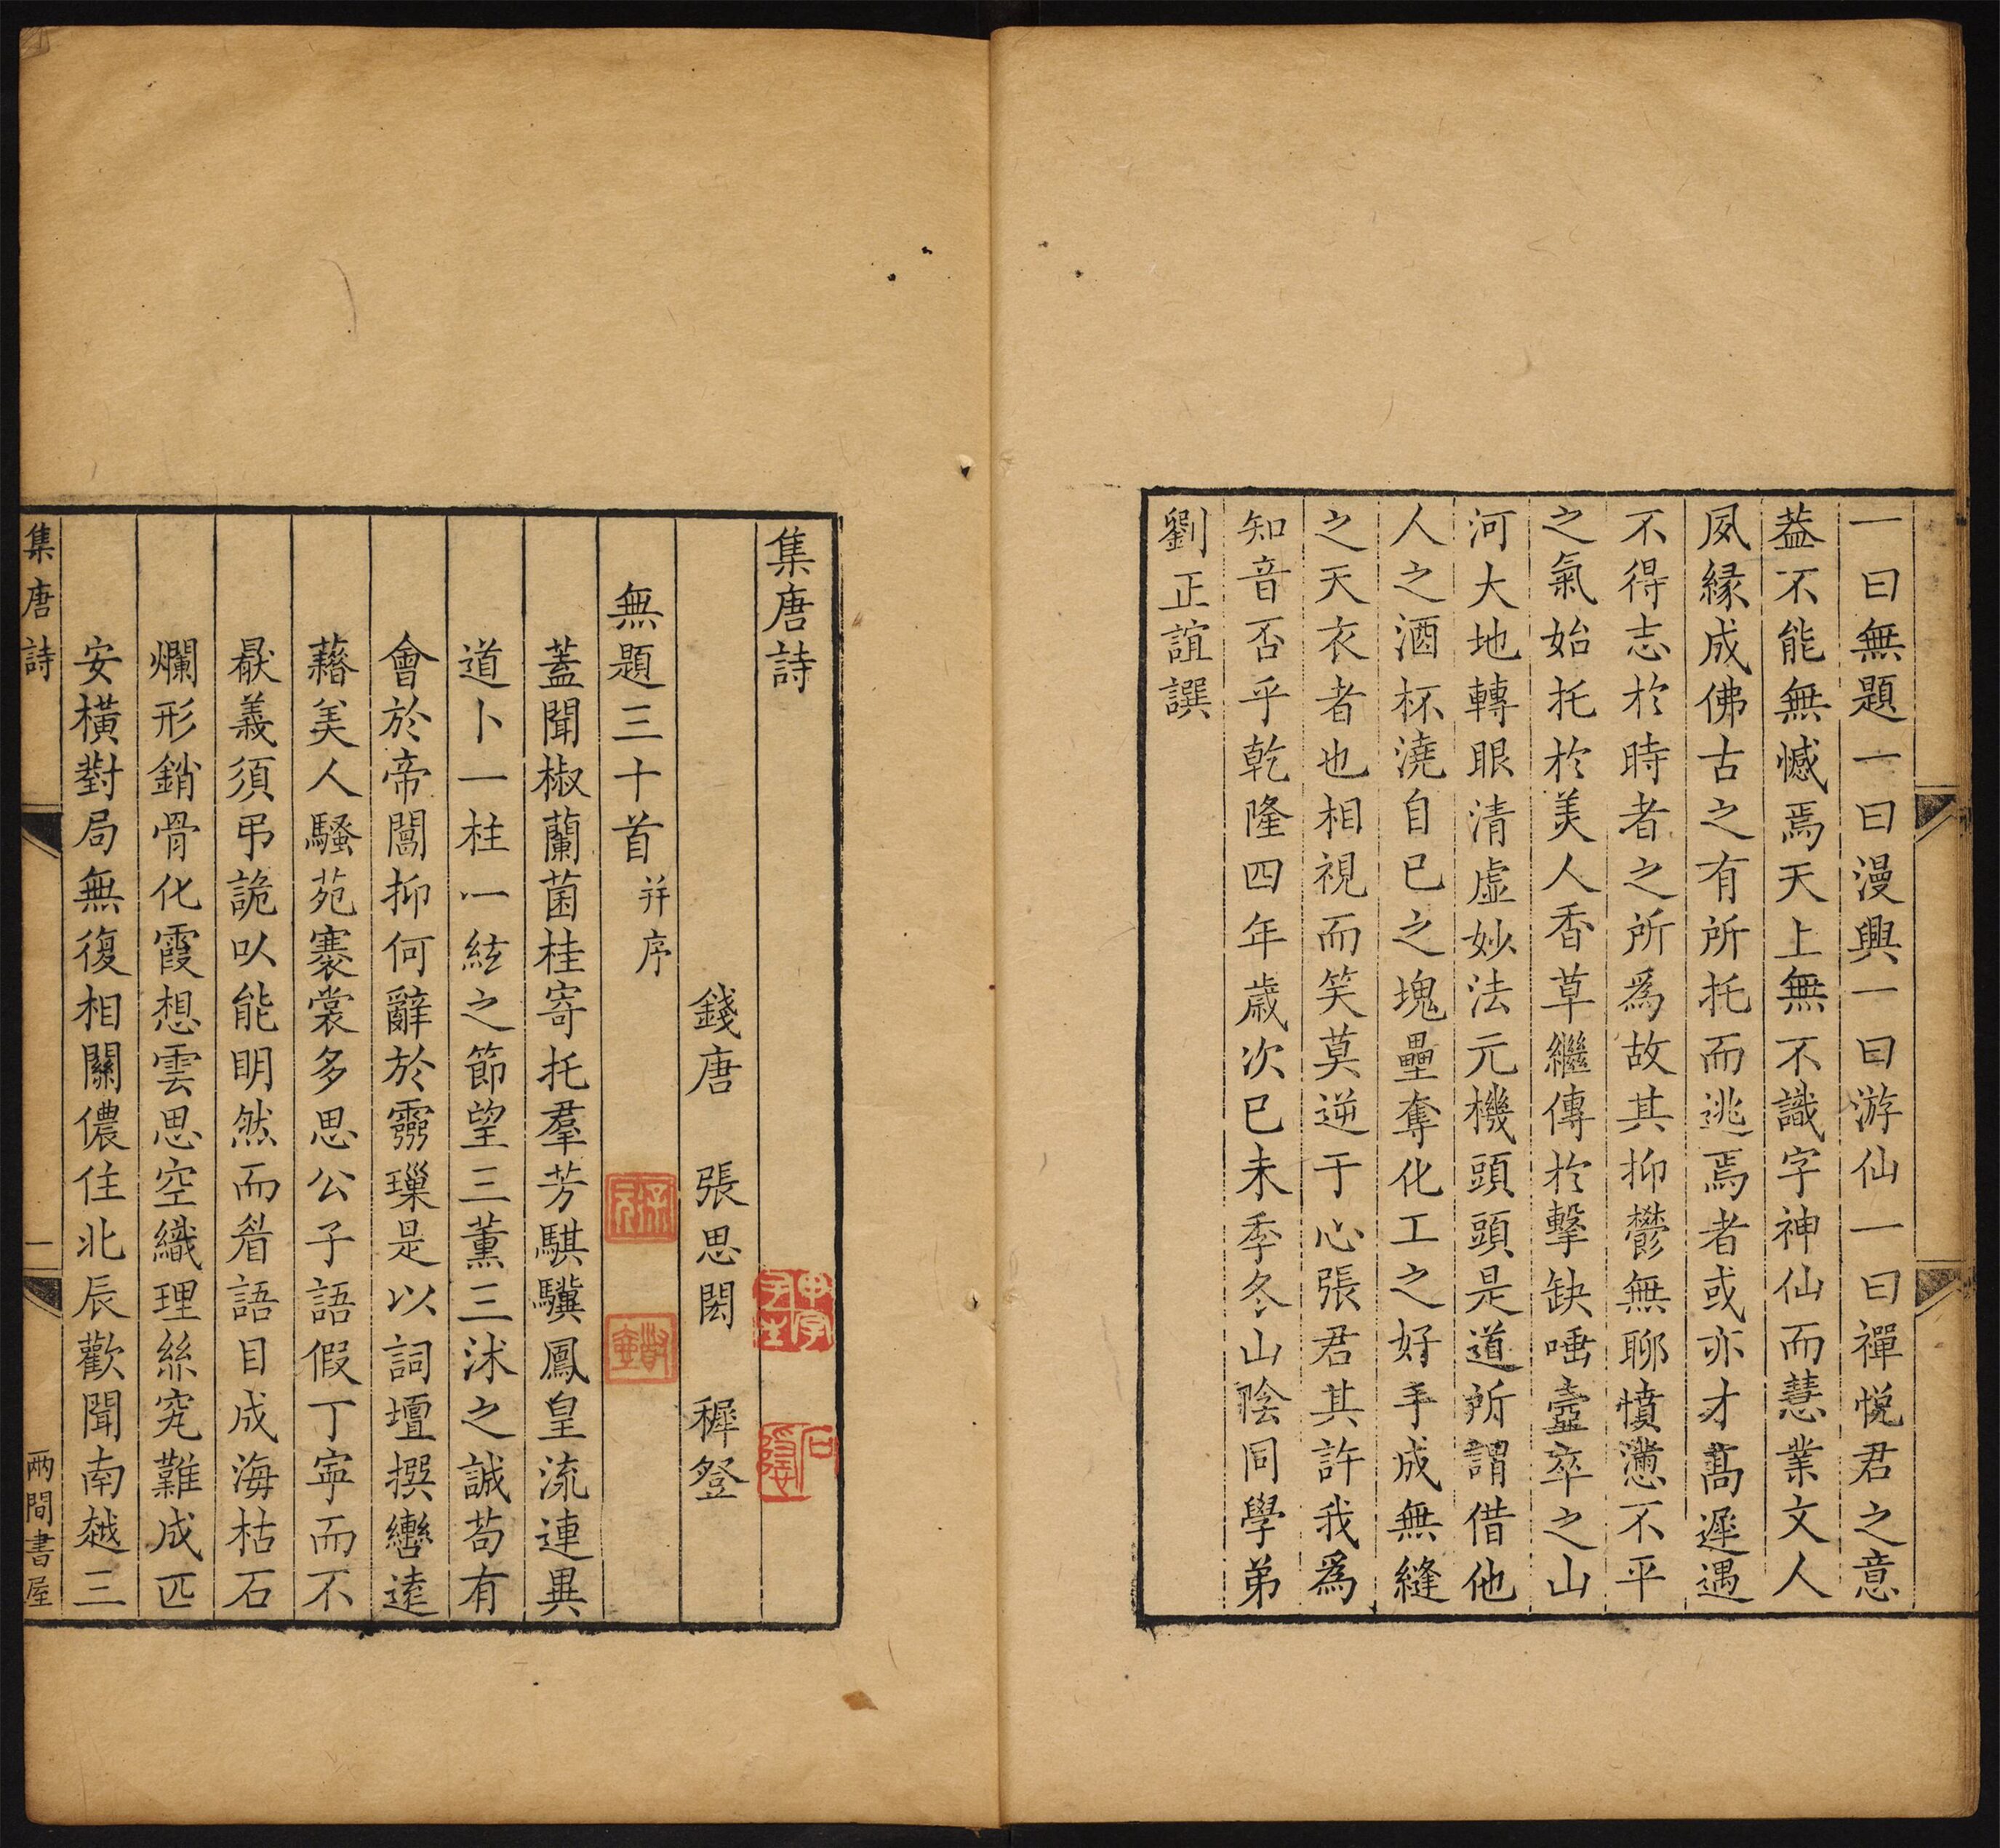 一曰無題一曰漫興一曰游仙一曰禪悅君之意
葢不能無憾焉天上無不識字神仙而慧業文人
夙緣成佛古之有所托而逃焉者或亦才髙遲遇
不得志於時者之所爲故其抑鬱無聊憤懣不平
之氣始托於美人香草繼傳於擊缺唾壺卒之山
河大地轉眼清虛妙法元機頭頭是道所謂借他
人之酒杯澆自已之塊壘奪化工之好手成無縫
之天衣者也相視而笑莫逆于心張君其許我爲
知音否乎乾隆四年歲次已未季冬山陰同學弟
劉正誼譔
集唐詩
錢唐 張思閎 穉登
無題三十首 并序
蓋聞椒蘭菌桂寄托羣芳騏驥鳳皇流連異
道卜一柱一絃之節望三薰三沐之誠苟有
會於帝閽抑何辭於靈璅是以詞壇撰轡遠
藉美人騷苑褰裳多思公子語假丁寧而不
猒義須弔詭以能明然而眢語目成海枯石
爛形銷骨化霞想雲思空織理絲究難成匹
安橫對局無復相關儂住北辰歡聞南越三
集唐詩
一
兩間書屋